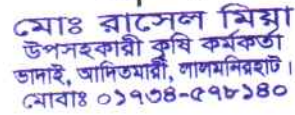 মোঃ রাসেল মিয়া
উপসহকারী কৃষি কর্মকর্তা
ভাদাই, আদিতমারী, লালমনিরহাট।
মোবাঃ ০১৭৩৪-৫৭৮১৪০